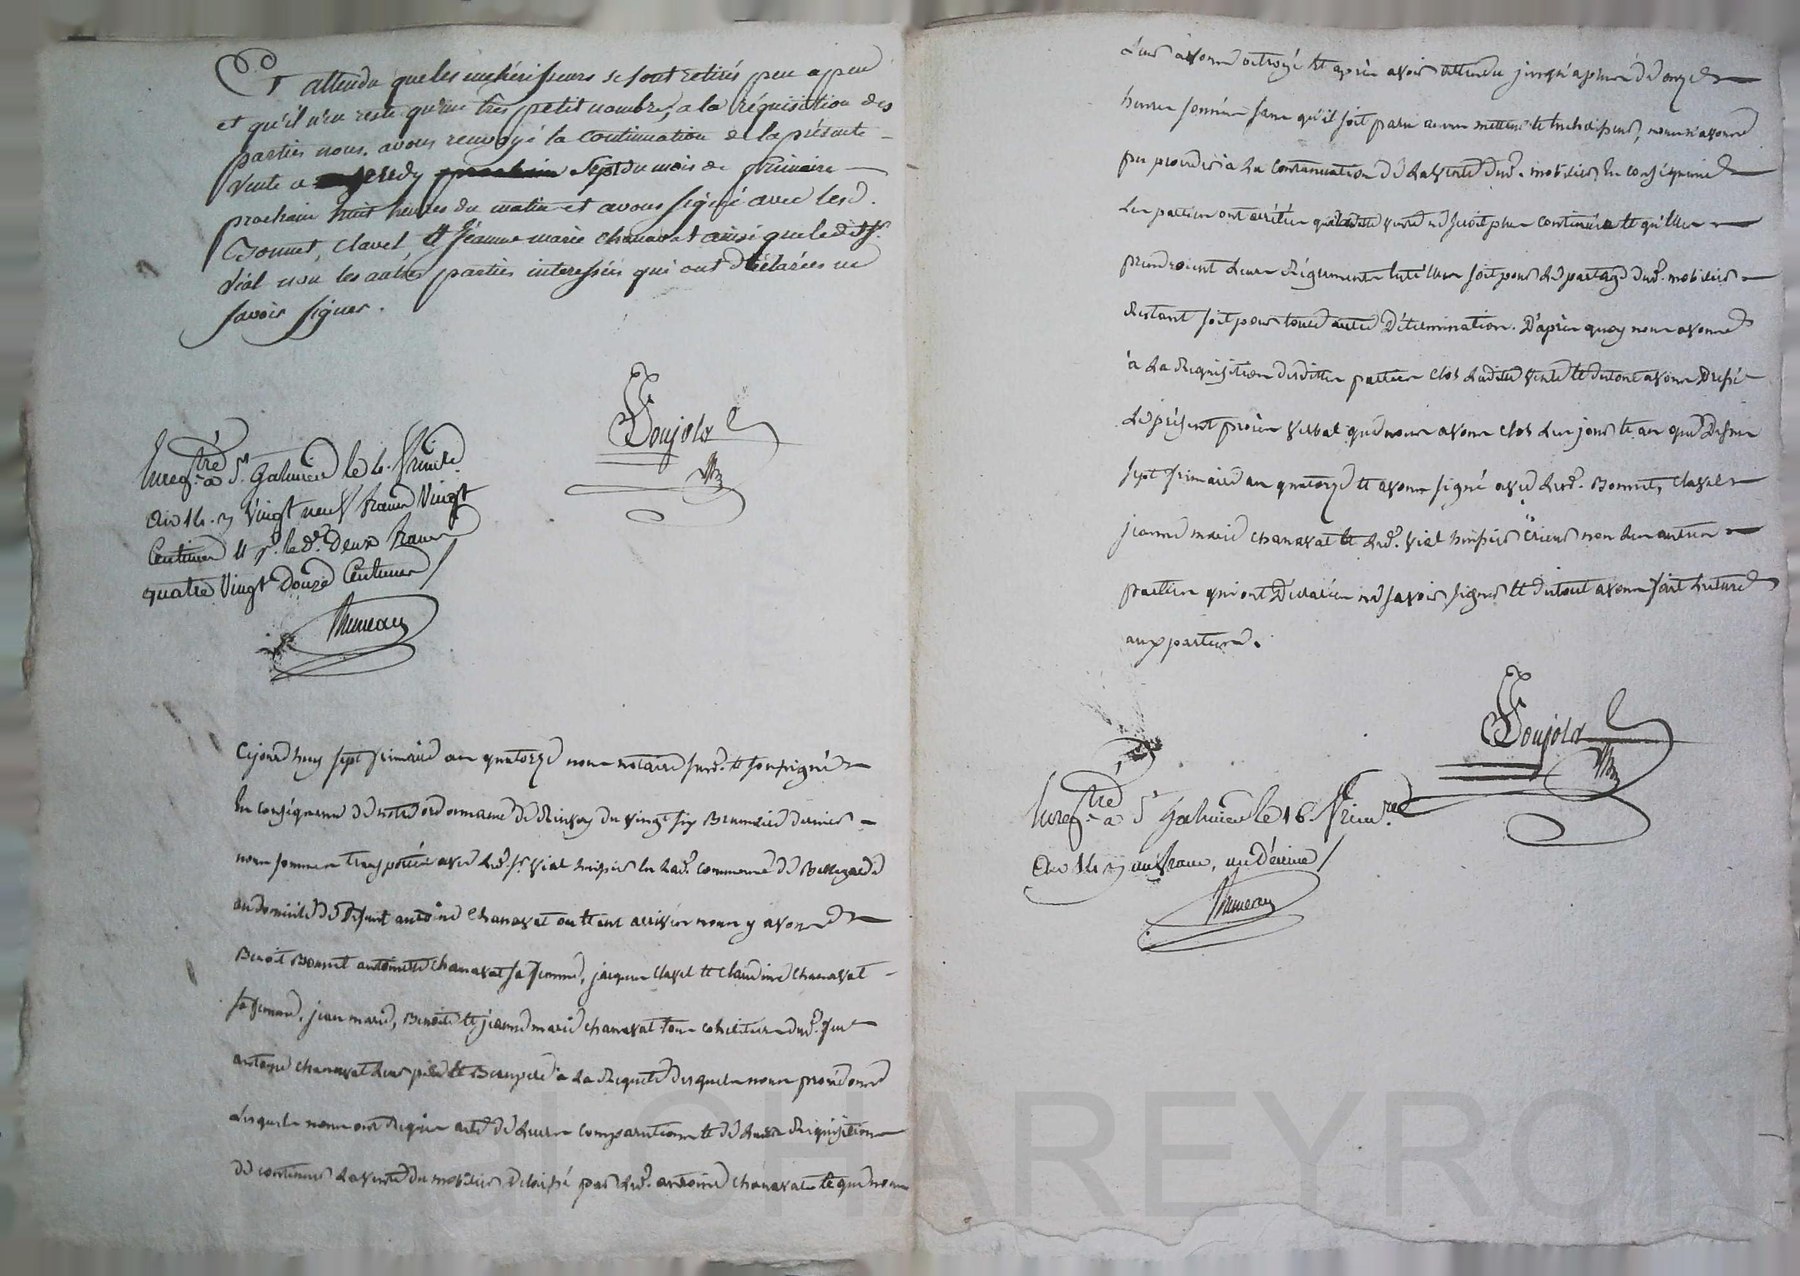 Et attendu que les encherisseurs se sont retirés peu a peu
et qu'il n'en reste qu'un très petit nombre, a la réquisition des
parties nous avons renvoyé la continuation de la présente
vente a jeudy sept du mois de frimaire
prochain huit heures du matin et avons signé avec lesd.
Bonnet, Clavel et Jeanne marie chanavat ainsi que le dit sr.
Vial non les autres parties interessées qui ont déclarées ne
savoir signer.
Goujols
Enregtré à St Galmier le 4. frimre.
an 14. vingt neuf francs vingt
centimes le dr. deux francs
quatre vingt douze centimes
Cejourdhuy sept frimaire an quatorze nous notaire susd. et soussigné
En conséquence de notre ordonnance de renvoy du vingt six Brumaire dernier
nous sommes transportés avec led. sr. Vial huissier en lad. commune de Bellegarde
au domicile de défunt antoine Chanavat ou étant arrivés nous y avons
Benoit Bonnet antoinette chanavat sa femme, jacques Clavel et Claudine Chanavat
sa femme, jean marie, Benoite et jeanne marie chanavat tous cohéritiers dud. feu
antoine chanavat leur père et Beaupere a la Requete desquels nous procédons
lesquels nous ont requis acte de leurs comparutions et de leur Réquisition
de continuer la vente du mobilier délaissé par led. antoine chanavat ce que nous
leur avons octroyé et après avoir attendu jusqu'a plus de onze
heures sonnées sans qu'il soit paru aucun metteur et enchérisseur, nous n'avons
pu procéder à la continuation de la vente dud. mobilier, en conséquence
les parties ont arrêté que ladite vente ne seroit plus continuée et qu'elles
prendroient leurs Réglements entr'elles soit pour le partage dud. mobilier
Restant soit pour toute autre détermination. D'après quoy nous avons
à la Réquisition desdittes parties clos ladite vente et du tout avons Dressé
le présent procès verbal que nous avons clos les jour et an que Dessus
sept frimaire an quatorze et avons signé avec lesd. Bonnet, Clavel
jeanne marie chanavat et led. Vial huissier crieur non les autres
parties qui ont Déclarées ne savoir signer et du tout avons fait lecture
aux parties.
Goujols
Enregtré à St Galmier le 16. frimre
an 14 un franc, un décime
CHAREYRON